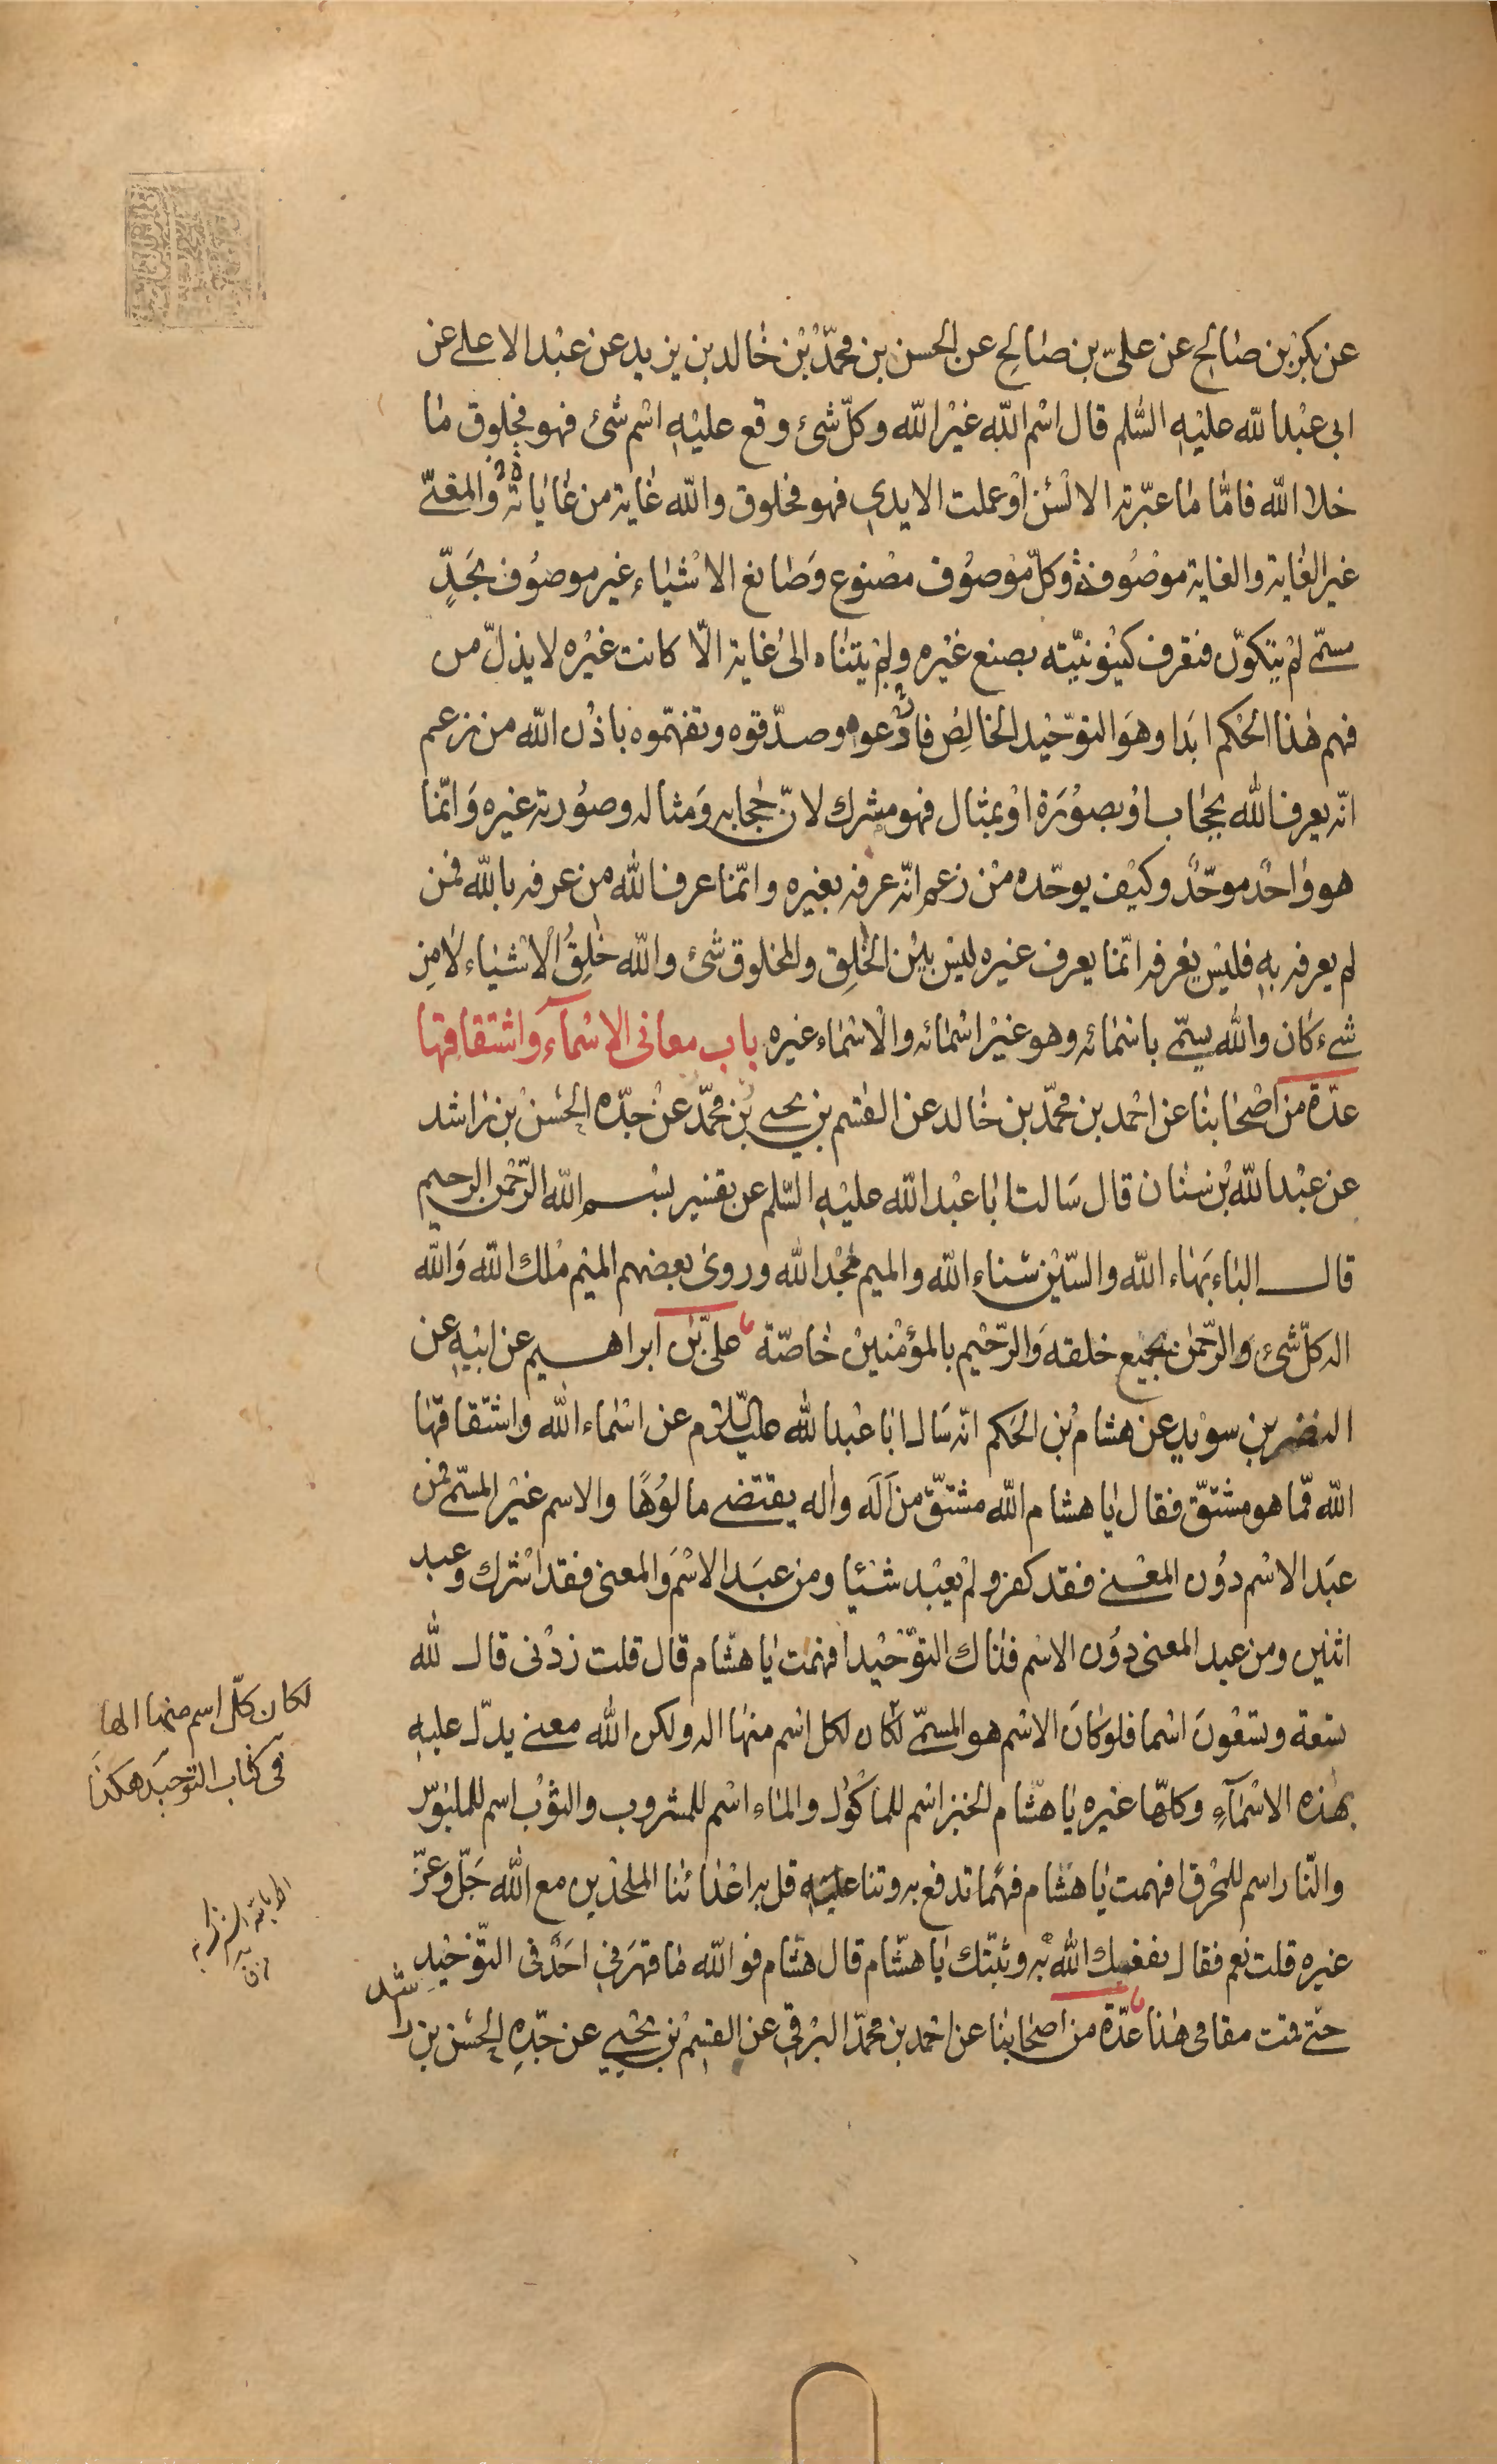 عن بكر بن صالح عن علىّ بن صالح عن الحسن بن محمّد بن خالد بن يزيد عن عبد الاعلى عن
ابى عبد الله عليه السّلم قال اسم الله غير الله وكلّ شئ وقع عليه اسم شئ فهو مخلوق ما
خلا الله فامّا ما عبّرته الالسن او عملت الايدى فهو مخلوق والله غاية من غاياته والمغيّى
غير الغاية والغاية موصوفة وكلّ موصوف مصنوع وصانع الاشياء غير موصوف بحدّ
مسمّى لم يتكوّن فتعرف كينونيّته بصنع غيره ولم يتناه الى غاية الّا كانت غيره لا يذلّ من
فهم هذا الحكم ابدا وهو التوحيد الخالص فادعوه وصدّقوه وتفهّموه باذن الله من زعم
انّه يعرف الله بحجاب او بصورة او بمثال فهو مشرك لانّ حجابه ومثاله وصورته غيره وانّما
هو واحد موحّد وكيف يوحّده من زعم انّه عرفه بغيره وانّما عرف الله من عرفه بالله فمن
لم يعرفه به فليس يعرفه انّما يعرف غيره ليس بين الخلق والمخلوق شئ والله خلق الاشياء لا من
شىء كان والله يسمّى باسمائه وهو غير اسمائه والاسماء غيره باب معانى الاسمآء واشتقاقها
عدّة من اصحابنا عن احمد بن محمّد بن خالد عن القسم بن يحيى بن محمّد عن جدّه الحسن بن راشد
عن عبد الله بن سنان قال سالت ابا عبد الله عليه السّلم عن تفسير بسم الله الرّحمن الرحيم
قال الباء بهاء الله والسّين سناء الله والميم مجد الله وروى بعضهم الميم ملك الله والله
اله كلّ شئ والرّحمن بجميع خلقه والرّحيم بالمؤمنين خاصّة علىّ بن ابراهيم عن ابيه عن
النضر بن سويد عن هشام بن الحكم انّه سال ابا عبد الله عليه السّلام عن اسماء الله واشتقاقها
الله ممّا هو مشتقّ فقال يا هشام الله مشتقّ من اَلَه واله يقتضى مالوُهًا والاسم غير المسمّى فمن
عبد الاسم دون المعنى فقد كفر ولم يعبد شيئا ومن عبد الاسم والمعنى فقد اشرك وعبد
اثنين ومن عبد المعنى دون الاسم فذاك التوّحيد افهمت يا هشام قال قلت زدنى قال لله
تسعة وتسعون اسما فلو كان الاسم هو المسمّى لكان لكل اسم منها اله ولكن الله معنى يدلّ عليه
بهذه الاسمآء وكلّها غيره يا هشام الخبز اسم للماكول والماء اسم للمشروب والثوب اسم للملبوس
والنّار اسم للمحرق افهمت يا هشام فهما تدفع به وتنا عليه قل به اعدائنا الملحذين مع الله جلّ وعزّ
غيره قلت نعم فقال نفعك الله به وثبّتك يا هشام قال هشام فو الله ما قهرنى احد فى التّوحيد
حتّى قمت مقامى هذا عدّة من اصحابنا عن احمد بن محمّد البرقى عن القسم بن يحيى عن جدّه الحسن بن راشد
لكان كلّ اسم منها الها
فى كتاب التوحيد هكذا